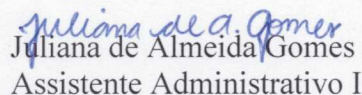 Juliana de A. Gomes
Juliana de Almeida Gomes
Assistente Administrativo I